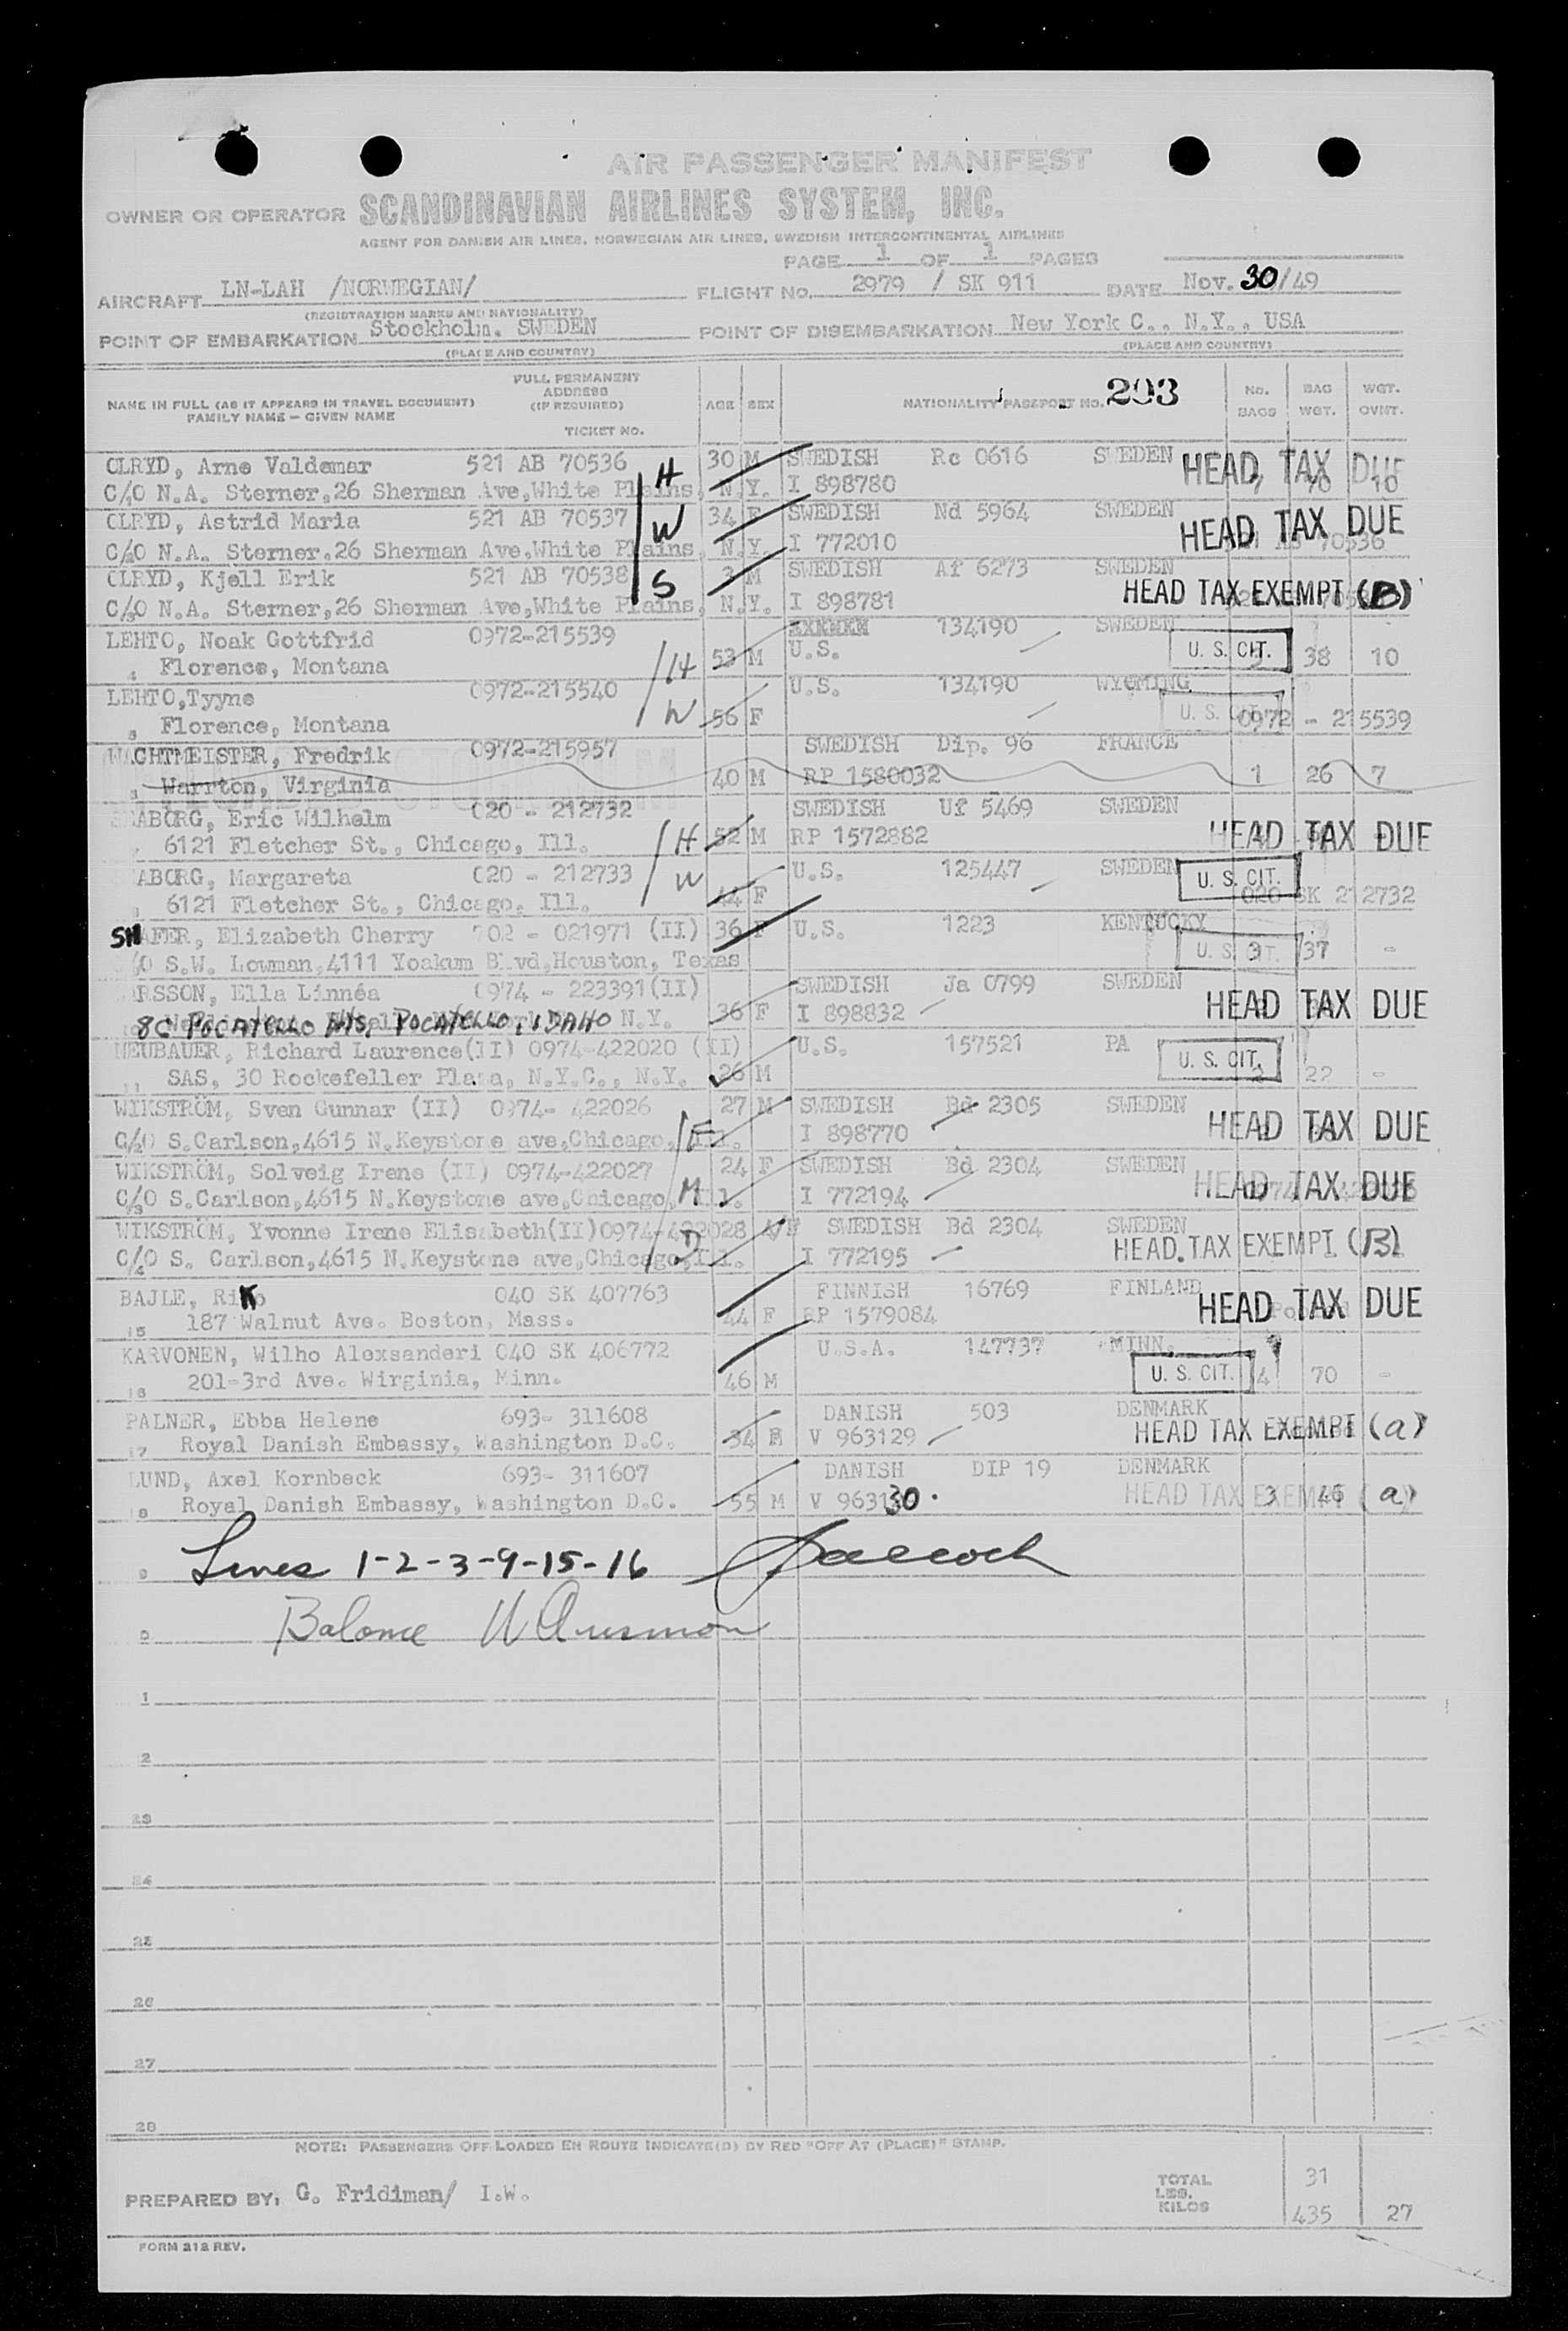 AIR PASSENGER MANIFEST
OWNER OR OPERATOR SCANDINAVIAN AIRLINES SYSTEM, INC.
AGENT FOR DANISH AIR LINES, NORWEGIAN AIR LINES, SWEDISH INTERCONTINENTAL AIRLINES
PAGE 1 OF 1 PAGES
AIRCRAFT LN-LAH /NORWEGIAN/ FLIGHT NO. 2979 / SK 911 DATE Nov. 30/49
(REGISTRATION MARKS AND NATIONALITY)
POINT OF EMBARKATION Stockholm. SWEDEN POINT OF DISEMBARKATION New York C., N.Y., USA
(PLACE AND COUNTRY) (PLACE AND COUNTRY)
NAME IN FULL (AS IT APPEARS IN TRAVEL DOCUMENT) FAMILY NAME – GIVEN NAME FULL PERMANENT ADDRESS (IF REQUIRED) TICKET NO. AGE SEX NATIONALITY PASSPORT NO. 203 NO. BAGS BAG WGT. WGT. OVWT.
OLRYD, Arne Valdemar 521 AB 70536 H 30 M SWEDISH Rc 0616 SWEDEN HEAD TAX DUE
C/O N.A. Sterner,26 Sherman Ave,White Plains, N.Y. I 898780 70 10
OLRYD, Astrid Maria 521 AB 70537 W 34 F SWEDISH Nd 5964 SWEDEN HEAD TAX DUE
C/O N.A. Sterner,26 Sherman Ave,White Plains, N.Y. I 772010 70536
OLRYD, Kjell Erik 521 AB 70538 S 3 M SWEDISH Af 6273 SWEDEN
C/O N.A. Sterner,26 Sherman Ave,White Plains, N.Y. I 898781 HEAD TAX EXEMPT (B)
LEHTO, Noak Gottfrid 0972-215539 134190 SWEDEN
4 Florence, Montana H 53 M U.S. U. S. CIT. 38 10
LEHTO,Tyyne 0972-215540 U.S. 134190 WYOMING
5 Florence, Montana W 56 F U. S. CIT. 0972 - 215539
WACHTMEISTER, Fredrik 0972-215957 SWEDISH Dip. 96 FRANCE
Warrton, Virginia 40 M RP 1580032 1 26 7
ABORG, Eric Wilhelm 020 - 212732 SWEDISH Uf 5469 SWEDEN
6121 Fletcher St., Chicago, Ill. H 52 M RP 1572882 HEAD TAX DUE
ABORG, Margareta 020 - 212733 W U.S. 125447 SWEDEN U. S. CIT.
6121 Fletcher St., Chicago, Ill. 44 F 020 SK 212732
SHAFER, Elizabeth Cherry 702 - 021971 (II) 36 F U.S. 1223 KENTUCKY
C/O S.W. Lowman,4111 Yoakum Blvd,Houston, Texas U. S. CIT. 3 37 -
RSSON, Ella Linnéa 0974 - 223391(II) SWEDISH Ja 0799 SWEDEN
8C POCATELLO HTS. POCATELLO, IDAHO N.Y. 36 F I 898832 HEAD TAX DUE
NEUBAUER, Richard Laurence(II) 0974-422020 (II) U.S. 157521 PA
11 SAS, 30 Rockefeller Plaza, N.Y.C., N.Y. 26 M U. S. CIT. 2 22 -
WIKSTRÖM, Sven Gunnar (II) 0974- 422026 27 M SWEDISH Bd 2305 SWEDEN
C/O S.Carlson,4615 N.Keystone ave,Chicago, Ill. F I 898770 HEAD TAX DUE
WIKSTRÖM, Solveig Irene (II) 0974-422027 24 F SWEDISH Bd 2304 SWEDEN
C/O S.Carlson,4615 N.Keystone ave,Chicago, Ill. M I 772194 HEAD TAX DUE
WIKSTRÖM, Yvonne Irene Elisabeth(II)0974-422028 SWEDISH Bd 2304 SWEDEN
C/O S. Carlson,4615 N.Keystone ave,Chicago,Ill. D I 772195 HEAD TAX EXEMPT (B)
BAJLE, Riko 040 SK 407763 FINNISH 16769 FINLAND
15 187 Walnut Ave. Boston, Mass. 44 F RP 1579084 HEAD TAX DUE
KARVONEN, Wilho Alexsanderi 040 SK 406772 U.S.A. 147737 MINN.
16 201-3rd Ave. Wirginia, Minn. 46 M U. S. CIT. 4 70 -
PALNER, Ebba Helene 693- 311608 DANISH 503 DENMARK
17 Royal Danish Embassy, Washington D.C. 34 F V 963129 HEAD TAX EXEMPT (a)
LUND, Axel Kornbeck 693- 311607 DANISH DIP 19 DENMARK
18 Royal Danish Embassy, Washington D.C. 55 M V 963130. HEAD TAX EXEMPT (a) 3 46
Lines 1-2-3-9-15-16
Balance
1
2
23
24
25
26
27
28
NOTE: PASSENGERS OFF LOADED EN ROUTE INDICATE(D) BY RED "OFF AT (PLACE)" STAMP.
PREPARED BY: G. Fridiman/ I.W. TOTAL LBS. KILOS 31 435 27
FORM 212 REV.